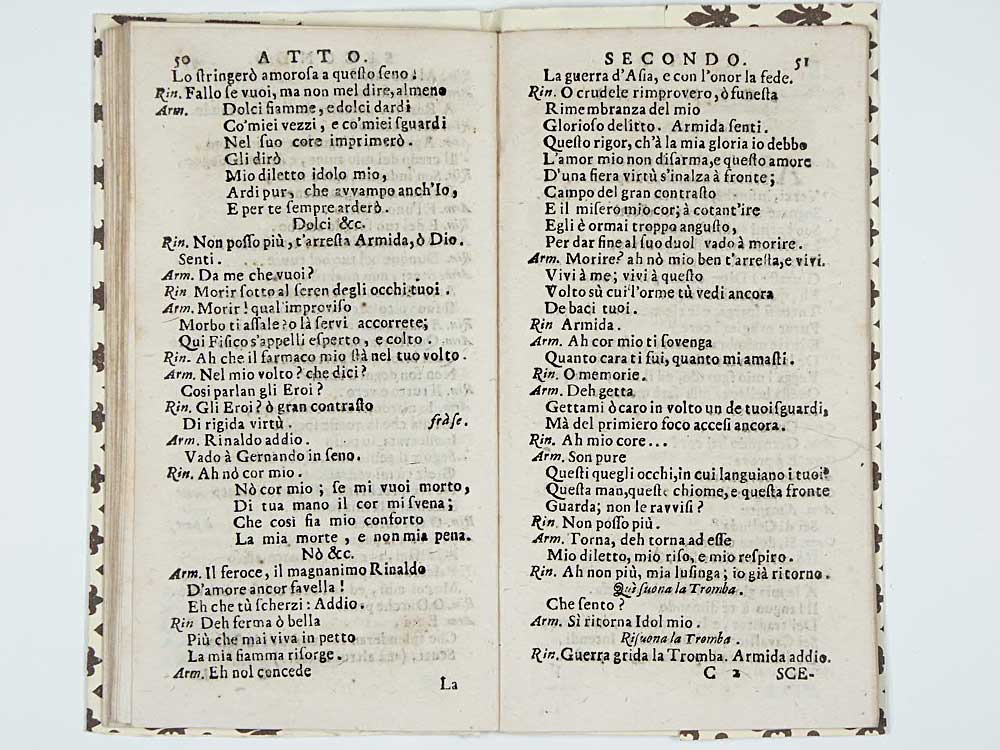 50 ATTO.
Lo stringerò amorosa a questo seno.
Rin. Fallo se vuoi, ma non mel dire, almeno
Arm. Dolci fiamme, e dolci dardi
Co'miei vezzi, e co'miei sguardi
Nel suo core imprimerò.
Gli dirò
Mio diletto idolo mio,
Ardi pur, che avvampo anch'Io,
E per te sempre arderò.
Dolci &c.
Rin. Non posso più, t'arresta Armida, ò Dio.
Senti.
Arm. Da me che vuoi?
Rin Morir sotto al seren degli occhi tuoi.
Arm. Morir! qual'improviso
Morbo ti assale? o là servi accorrete;
Qui Fisico s'appelli esperto, e colto.
Rin. Ah che il farmaco mio stà nel tuo volto.
Arm. Nel mio volto? che dici?
Cosi parlan gli Eroi?
Rin. Gli Eroi? ò gran contrasto
Di rigida virtù. fràse.
Arm. Rinaldo addio.
Vado à Gernando in seno.
Rin. Ah nò cor mio.
Nò cor mio; se mi vuoi morto,
Di tua mano il cor mi svena;
Che cosi fia mio conforto
La mia morte, e non mia pena.
Nò &c.
Arm. Il feroce, il magnanimo Rinaldo
D'amore ancor favella!
Eh che tù scherzi: Addio.
Rin Deh ferma ò bella
Più che mai viva in petto
La mia fiamma risorge.
Arm. Eh nol concede
La
SECONDO. 51
La guerra d'Asia, e con l'onor la fede.
Rin. O crudele rimprovero, ò funesta
Rimembranza del mio
Glorioso delitto. Armida senti.
Questo rigor, ch'à la mia gloria io debbo
L'amor mio non disarma, e questo amore
D'una fiera virtù s'inalza à fronte;
Campo del gran contrasto
E il misero mio cor; à cotant'ire
Egli è ormai troppo angusto,
Per dar fine al suo duol vado à morire.
Arm. Morire? ah nò mio ben t'arresta, e vivi.
Vivi à me; vivi à questo
Volto sù cui l'orme tù vedi ancora
De baci tuoi.
Rin Armida.
Arm. Ah cor mio ti sovenga
Quanto cara ti fui, quanto mi amasti.
Rin. O memorie.
Arm. Deh getta
Gettami ò caro in volto un de tuoi sguardi,
Mà del primiero foco accesi ancora.
Rin. Ah mio core...
Arm. Son pure
Questi quegli occhi, in cui languiano i tuoi?
Questa man, queste chiome, e questa fronte
Guarda; non le ravvisi?
Rin. Non posso più.
Arm. Torna, deh torna ad esse
Mio diletto, mio riso, e mio respiro.
Rin. Ah non più, mia lusinga; io già ritorno.
Quì suona la Tromba.
Che sento?
Arm. Sì ritorna Idol mio.
Risuona la Tromba.
Rin. Guerra grida la Tromba. Armida addio.
C 2 SCE-